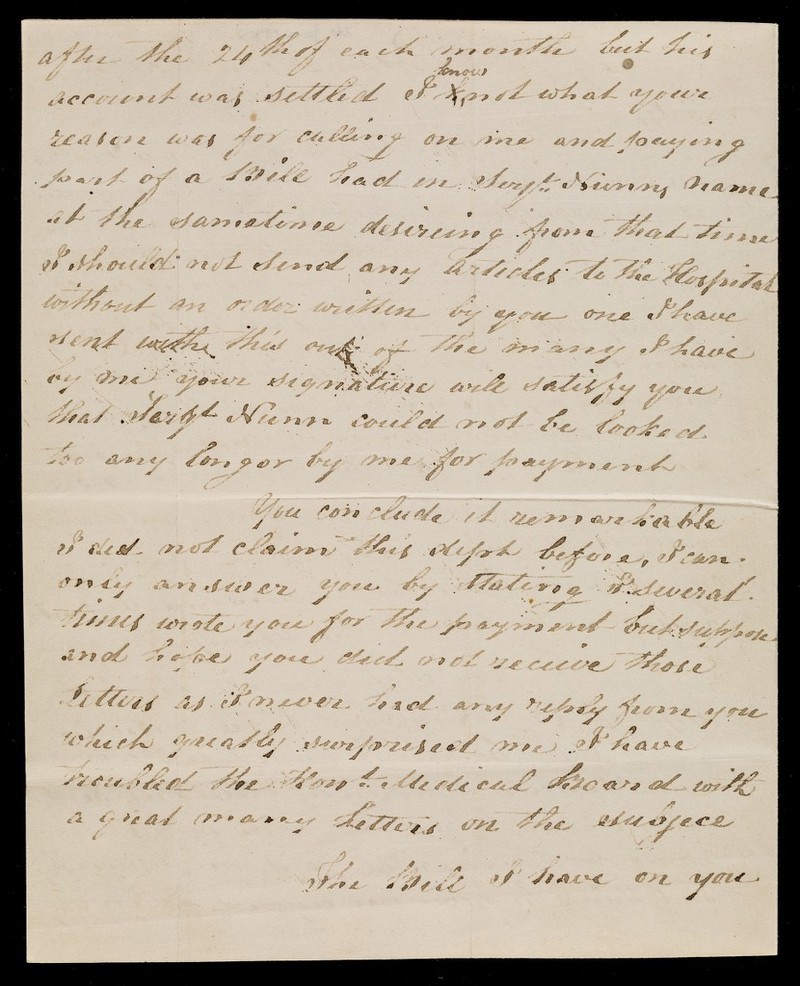 after the 24th of each month but his
account was settled I know not what your
reason was for calling on me and paying
part of a Bill had in Sergt. Nunns name
at the sametime desireing from that time
I should not send any articles to the Hospital
without an order written by you one I have
sent with this out of the many I have
by me your signature will satisfy you
that Sergt Nunn could not be looked
too any longor by me for payment
You conclude it remarkable
I did not claim this dept before, I can
only answer you by stating I several
times wrote you for the payment but suppose
and hope you did not receive those
letters as I never had any reply from you
which greatly surprised me I have
troubled the Medical Board with
a great many letters on the subject
The Bill I have on you